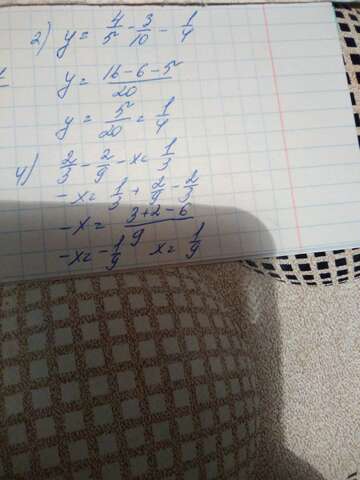 2) y = 4/5 - 3/10 - 1/4
y = (16-6-5)/20
y = 5/20 = 1/4
4) 2/3 - 2/9 - x = 1/3
-x = 1/3 + 2/9 - 2/3
-x = (3+2-6)/9
-x = -1/9 x = 1/9